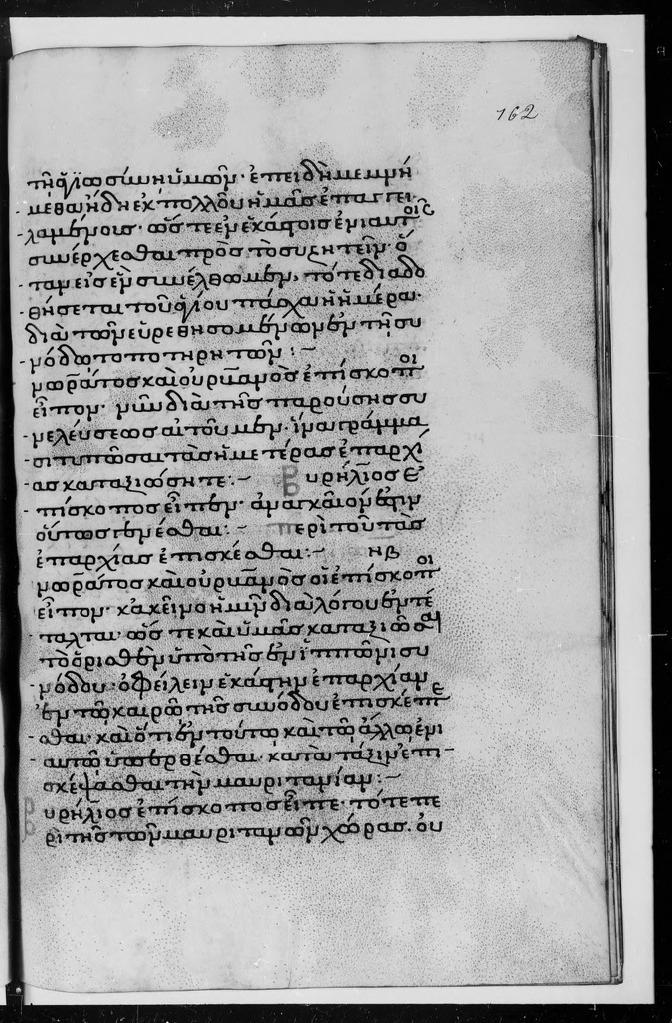 162
τῇ ἁγιωσύνῃ ὑμῶν· ἐπειδὴ μεμνή
μεθα ἤδη ἐκ πολλοῦ ἡμᾶς ἐπαγγει
λαμένοις· ὥστε ἐν ἑκάστοις ἐνιαυτοῖς
συνέρχεσθαι πρὸς τὸ συζητεῖν· ὅ
ταν εἰς ἓν συνέλθωμεν, τότε διαδο
θήσεται τοῦ ἁγίου πάσχα ἡ ἡμέρα·
διὰ τῶν εὑρεθησομένων ἐν τῇ συ
νόδω τοποτηρητῶν :~
νωρᾶτος καὶ οὐρβανὸς ἐπίσκοποι
εἶπον· νῦν διὰ τῆς παρούσης συ
νελεύσεως αἰτοῦμεν· ἵνα γράμμα
σι τυπῶσαι τὰς ἡμετέρας ἐπαρχί
ας καταξιώσητε :~ αυρήλιος ἐ
πίσκοπος εἶπεν· ἀναγκαῖον ἐστιν
οὕτως γενέσθαι :~ περὶ τοῦ τὰς
ἐπαρχίας ἐπισκέσθαι :~ νβ
νωρᾶτος καὶ οὐρβανὸς οἱ ἐπίσκοποι
εἶπον· κἀκεῖνο ἡμῖν διὰ λόγου ἐντέ
ταλται· ὥστε καὶ ὑμᾶς καταξιῶσαι
τὸ ὁρισθὲν ὑπὸ τῆς ἐν ἱππῶνι συ
νόδου· ὀφείλειν ἑκάστην ἐπαρχίαν
ἐν τῶ καιρῶ τῆς συνόδου ἐπισκέπτε
σθαι καὶ ὅτι ἐν τούτω καὶ τῶ ἄλλω ἐνι
αυτῶ ὑπερθέσθαι· κατὰ τάξιν ἐπι
σκέψασθαι τὴν μαυριτανίαν :~
αυρήλιος ἐπίσκοπος εἶπε· τότε πε
ρὶ τῆς τῶν μαυριτανῶν χώρας. οὐ